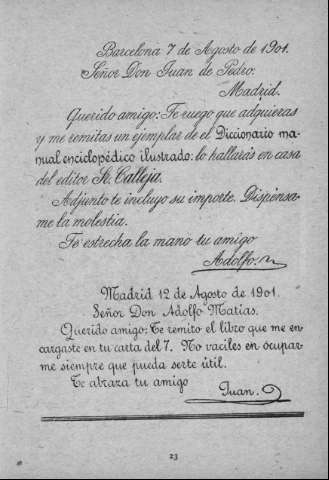 Barcelona 7 de Agosto de 1901.
Señor Don Juan de Pedro.
Madrid.
Querido amigo: Te ruego que adquieras
y me remitas un ejemplar de el Diccionario ma-
nual enciclopédico ilustrado: lo hallarás en casa
del editor Sr. Calleja.
Adjunto te incluyo su importe. Dispénsa-
me la molestia.
Te estrecha la mano tu amigo
Adolfo.
Madrid 12 de Agosto de 1901.
Señor Don Adolfo Matías.
Querido amigo: Te remito el libro que me en-
cargaste en tu carta del 7. No vaciles en ocupar-
me siempre que pueda serte útil.
Te abraza tu amigo
Juan.
23